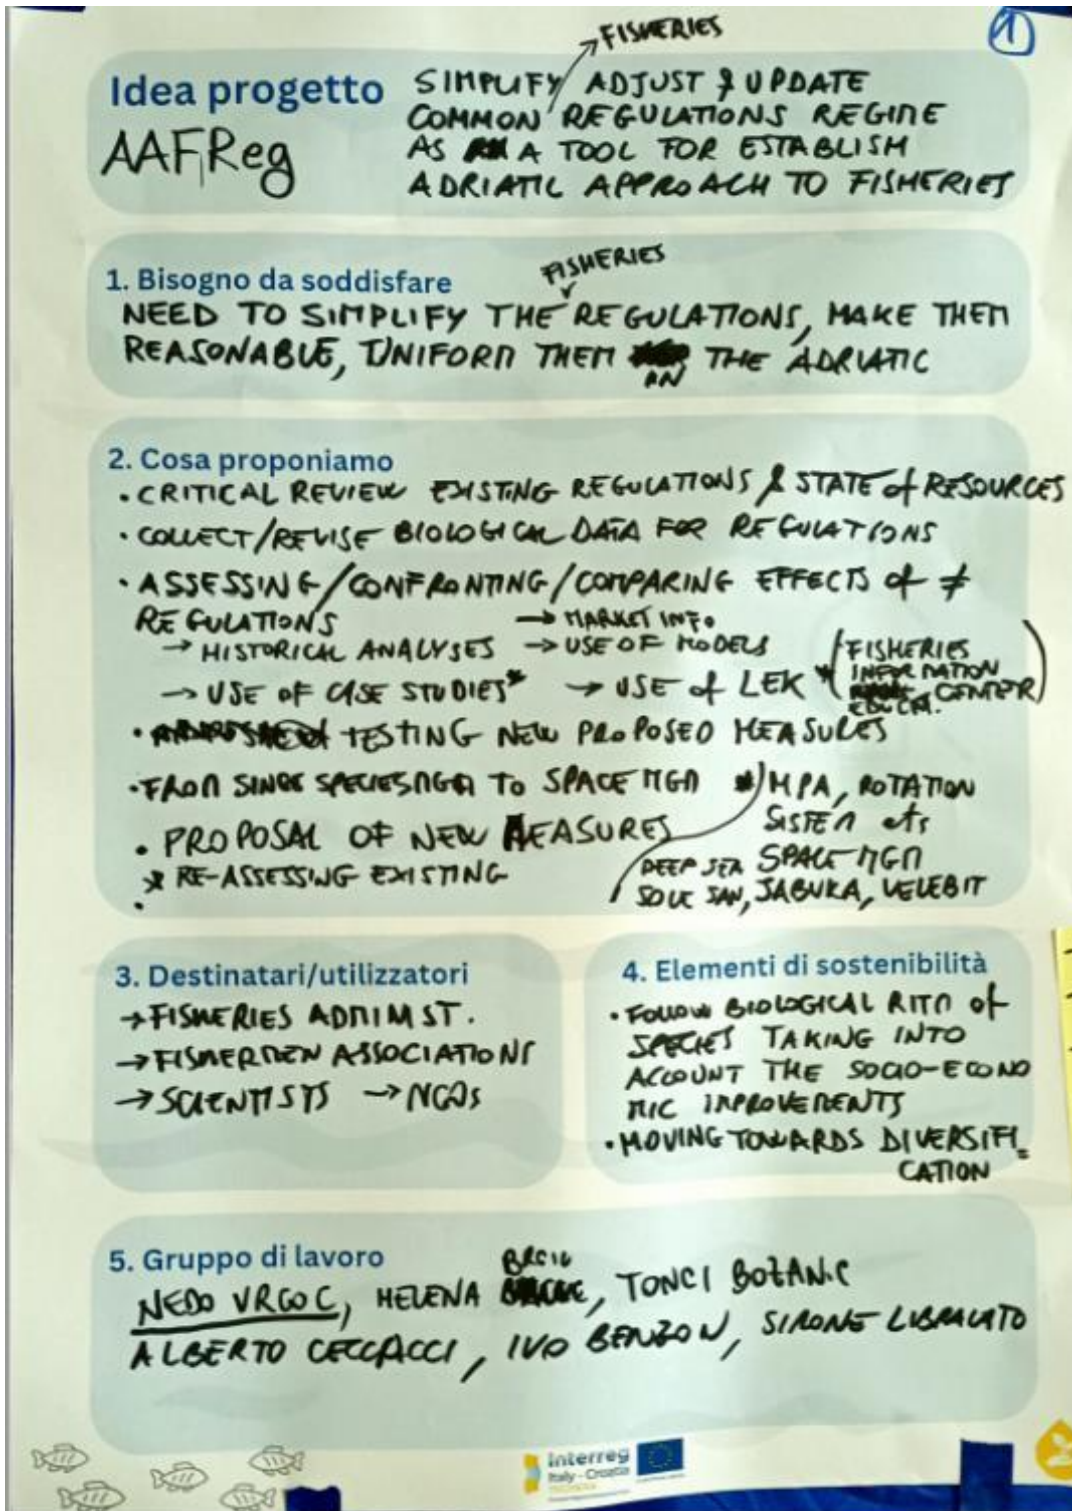 1
FISHERIES
Idea progetto
AAFReg
SIMPLIFY ADJUST & UPDATE
COMMON REGULATIONS REGIME
AS A TOOL FOR ESTABLISH
ADRIATIC APPROACH TO FISHERIES
1. Bisogno da soddisfare
FISHERIES
NEED TO SIMPLIFY THE REGULATIONS, MAKE THEM
REASONABLE, UNIFORM THEM THE ADRIATIC
2. Cosa proponiamo
• CRITICAL REVIEW EXISTING REGULATIONS & STATE of RESOURCES
• COLLECT/REVISE BIOLOGICAL DATA FOR REGULATIONS
• ASSESSING/CONFRONTING/COMPARING EFFECTS of ≠
REGULATIONS → MARKET INFO
→ HISTORICAL ANALYSES → USE OF MODELS
→ USE OF CASE STUDIES* → USE of LEK * (FISHERIES
INFORMATION
CENTER)
EDUCA.
• TESTING NEW PROPOSED MEASURES
• FROM SPECIES MGM TO SPACE MGM * MPA, ROTATION
SISTEM
• PROPOSAL OF NEW MEASURES
DEEP SEA SPACE MGM
* RE-ASSESSING EXISTING
SOLE SAN, JABUKA, VELEBIT
3. Destinatari/utilizzatori
→ FISHERIES ADMINIST.
→ FISHERMEN ASSOCIATIONS
→ SCIENTISTS → NGOs
4. Elementi di sostenibilità
• FOLLOW BIOLOGICAL RITM of
SPECIES TAKING INTO
ACCOUNT THE SOCIO-ECONO
MIC IMPROVEMENTS
• MOVING TOWARDS DIVERSIFI=
CATION
5. Gruppo di lavoro
NEDO VRGOC, HELENA, TONCI BOZANIC
ALBERTO CECCACCI, IVO BENZON, SIMONE LIBRALATO
Interreg
Italy - Croatia